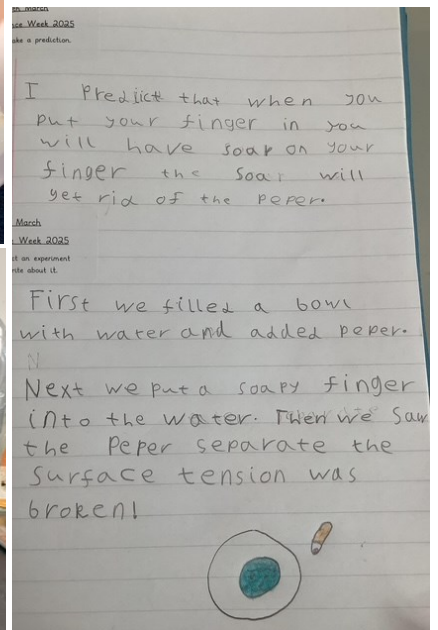 March
Week 2025
ke a prediction.
I Predict that when you
put your finger in you
will have soap on your
finger the Soap will
get rid of the peper.
March
Week 2025
an experiment
about it.
First we filled a bowl
with water and added peper.
N
Next we put a soapy finger
into the water. Then we saw
the Peper separate the
surface tension was
broken!